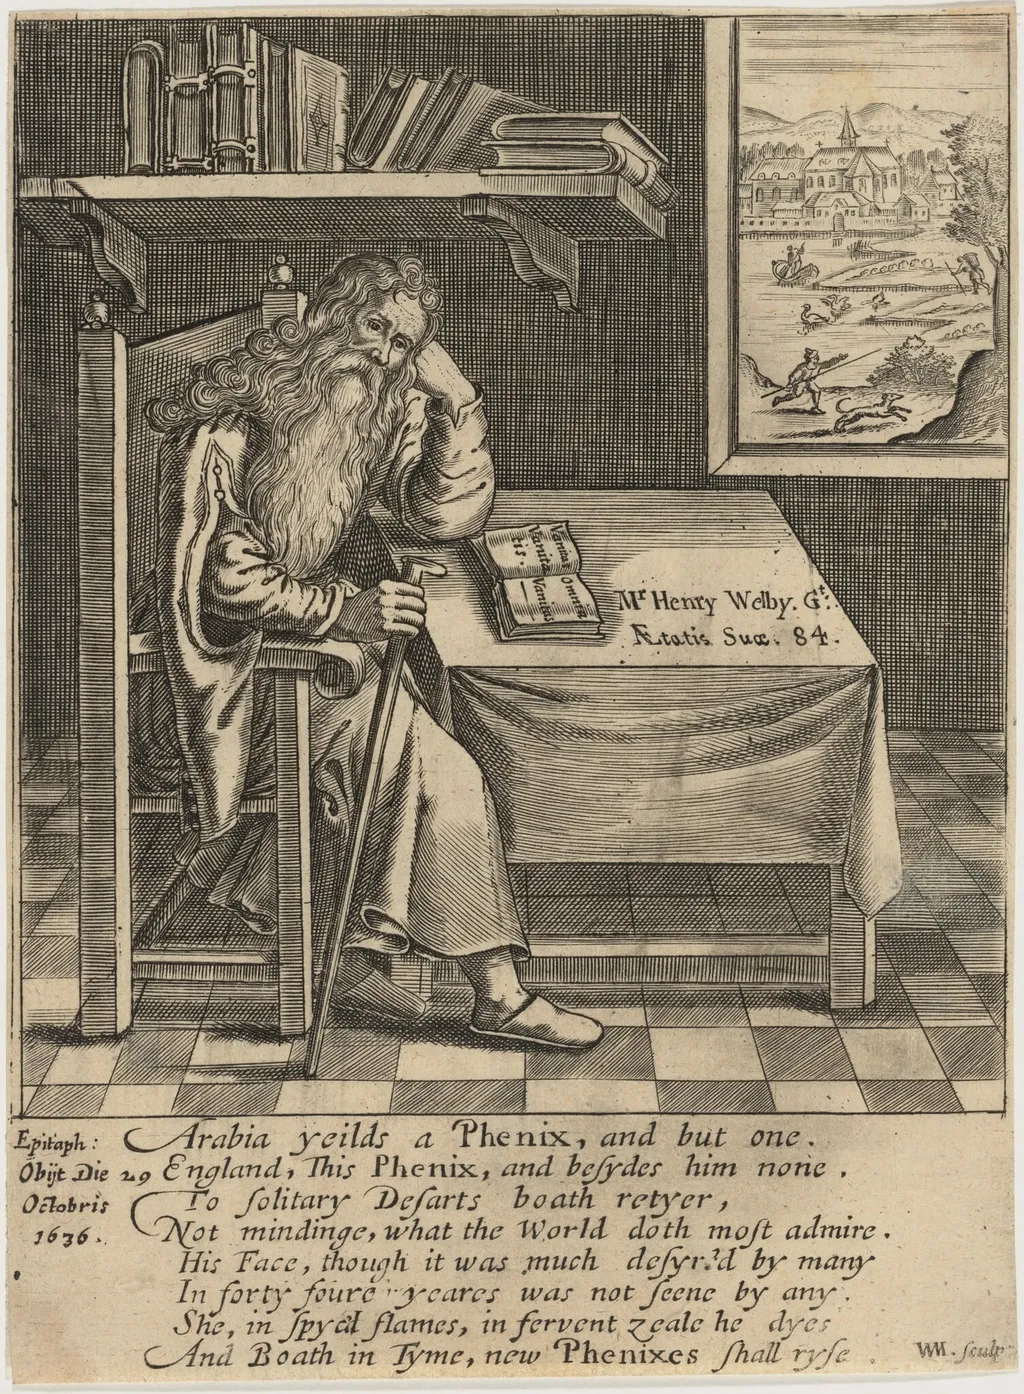 Vanitas
Vanita
tis.
Omnia
Vanitas
Mr Henry Welby. Gt.
Ætatis Suæ. 84.
Epitaph:
Obijt Die 29
Octobris
1636.
Arabia yeilds a Phenix, and but one.
England, This Phenix, and beſydes him none.
To ſolitary Deſarts boath retyer,
Not mindinge, what the World doth moſt admire.
His Face, though it was much deſyr'd by many
In forty foure yeares was not ſeene by any.
She, in ſpyc'd flames, in fervent zeale he dyes
And Boath in Tyme, new Phenixes ſhall ryſe.
WM. ſculp